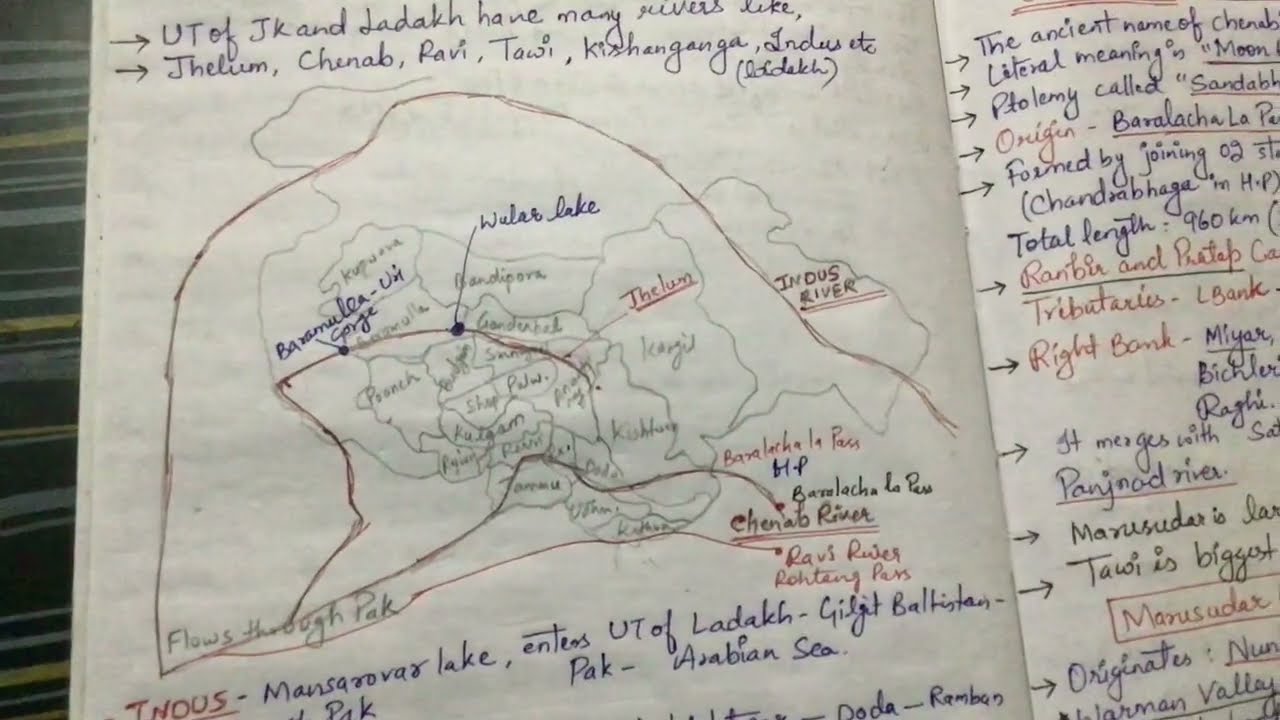 → UT of JK and Ladakh have many rivers like,
→ Jhelum, Chenab, Ravi, Tawi, Kishanganga, Indus etc
(Ladakh)
Wular lake
Kupwara
Bandipora
INDUS
RIVER
Jhelum
Baramulla-Uri
Gorge
Baramulla
Ganderbal
Kargil
Poonch
Pulw.
Shop
Kulgam
Kishtwar
Ram
Doda
Jammu
Udhm.
Kathua
Baralacha la Pass
H.P
Baralacha la Pass
Chenab River
Ravi River
Rohtang Pass
Flows through Pak
INDUS - Mansarovar lake, enters UT of Ladakh - Gilgit Baltistan -
Pak - Arabian Sea.
Pak
Doda - Ramban
→ The ancient name of Chenab
→ Literal meaning is "Moon
→ Ptolemy called "Sandabh
→ Origin - Baralacha La Pa
→ Formed by joining of 2
(Chandrabhaga in H.P)
Total length: 960 km (
→ Ranbir and Pratap Ca
Tributaries - L Bank -
→ Right Bank - Miyar,
Bichler
Raghi.
→ It merges with Sat
Panjnad river.
→ Marusudar is lar
→ Tawi is biggest
Marusudar
→ Originates: Nun
Warman Valley